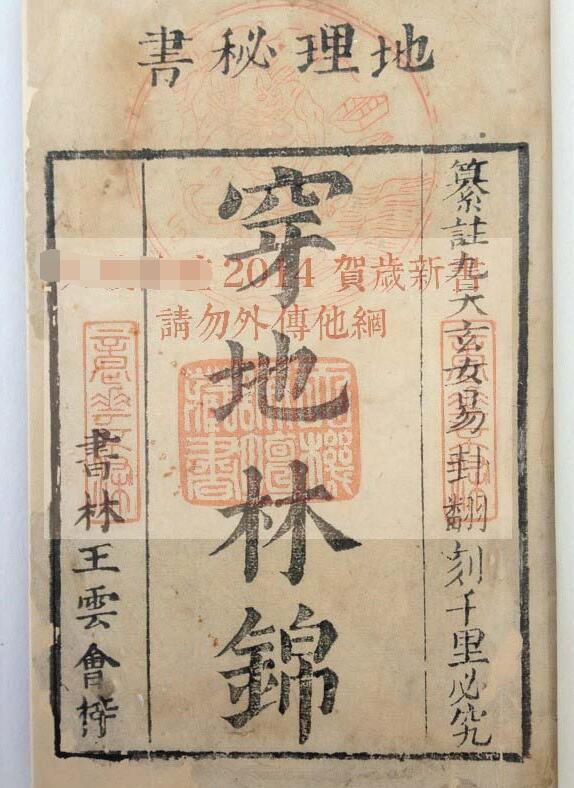 地理秘書
纂註九天玄女易卦翻刻千里必究
穿地林錦
書林王雲會梓
2014 賀歲新書
請勿外傳他網